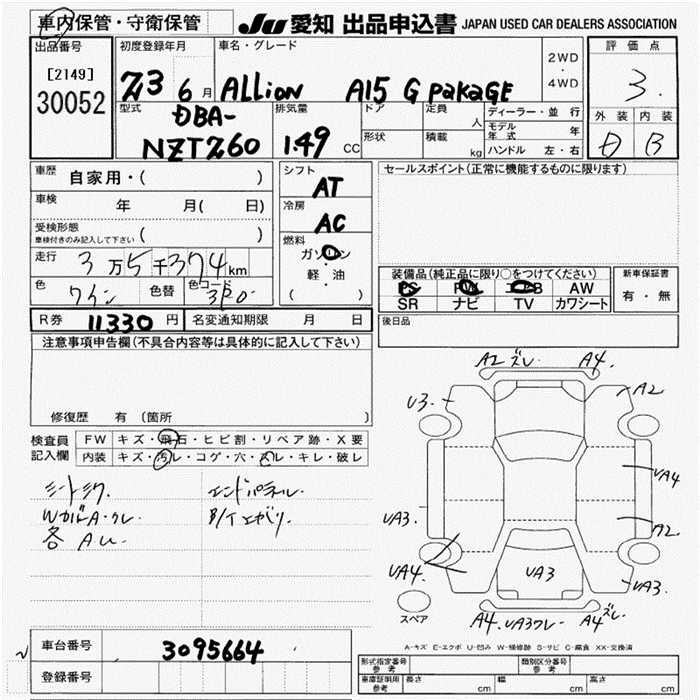 車内保管・守衛保管
JU 愛知 出品申込書 JAPAN USED CAR DEALERS ASSOCIATION
出品番号
[2149]
30052
初度登録年月
23 6月
車名・グレード
Allion A15 G pakaGE
2WD
・
4WD
評価点
3.
型式
DBA-
NZT260
排気量
1.49 CC
ドア
形状
定員
人
積載
kg
ディーラー・並行
モデル年式 年
ハンドル 左・右
外装 内装
D B
車歴 自家用・( )
車検 年 月( 日)
受検形態
車検付きのみ記入して下さい ( )
走行 3万5千374km
色 ワイン 色替 色コード 3P0
シフト
AT
冷房
AC
燃料
ガソリン
・
軽・油
( )
セールスポイント(正常に機能するものに限ります)
装備品(純正品に限り○をつけてください)
PS PW エアB AW
SR ナビ TV カワシート
新車保証書
有・無
R券 11330 円 名変通知期限 月 日
後日品
注意事項申告欄(不具合内容等は具体的に記入して下さい)
修復歴 有 (箇所 )
検査員
記入欄
FW キズ・飛石・ヒビ割・リペア跡・X要
内装 キズ・汚レ・コゲ・穴・スレ・キレ・破レ
シートシワ.
WガルA・クレ.
各AU.
エンドパネル.
B/Tエガリ.
A2 ズレ. A4.
U3. A2
UA4
UA3. A2.
UA4. UA3 UA3.
スペア
A4. UA3クレ. A4ズレ.
A-キズ E-エクボ U-凹み W-補修跡 S-サビ C-腐食 XX-交換済
車台番号 3095664
登録番号
形式指定番号
参考
類別区分番号
参考
車庫証明用
参考
長さ cm 幅 cm 高さ cm